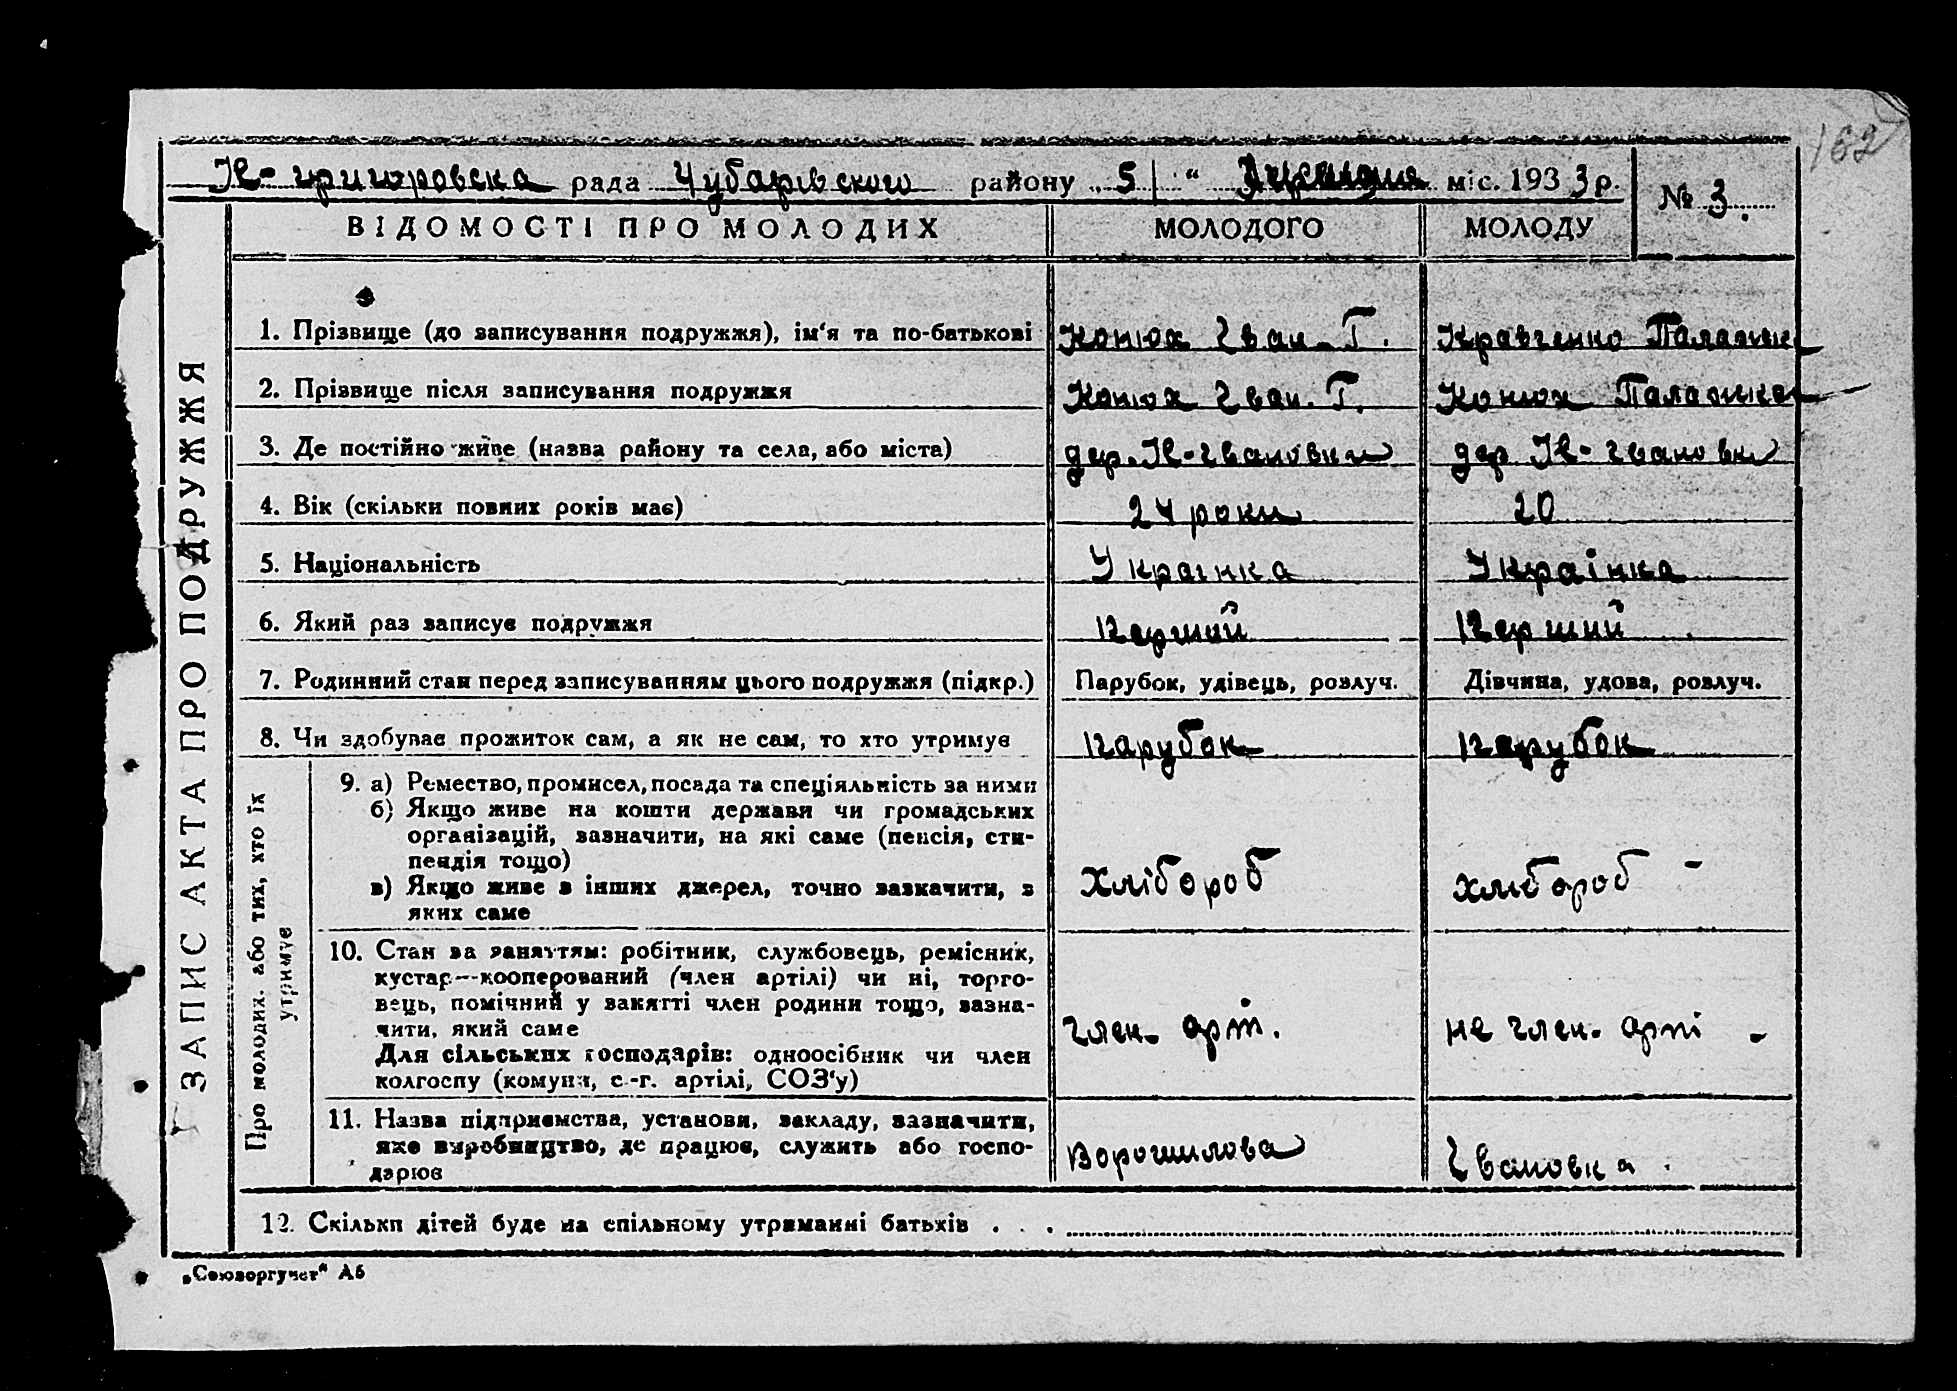 162
Н-григоровска рада Чубарівского району „5“ міс. 1933 р. № 3.
ЗАПИС АКТА ПРО ПОДРУЖЖЯ
ВІДОМОСТІ ПРО МОЛОДИХ МОЛОДОГО МОЛОДУ
1. Прізвище (до записування подружжя), ім‘я та по-батькові Конюх Іван. Г. Кравченко Палажк
2. Прізвище після записування подружжя Конюх Іван. Г. Конюх Палажка
3. Де постійно живе (назва району та села, або міста) дер. Н-Івановки дер Н-Івановки
4. Вік (скільки повних років має) 24 роки 20
5. Національність Українка Українка
6. Який раз записує подружжя Перший Перший
7. Родинний стан перед записуванням цього подружжя (підкр.) Парубок, удівець, розлуч. Дівчина, удова, розлуч.
8. Чи здобуває прожиток сам, а як не сам, то хто утримує парубок парубок
Про молодих, або тих, хто їх утримує
9. а) Ремество, промисел, посада та спеціяльність за ними
б) Якщо живе на кошти держави чи громадських
організацій, зазначити, на які саме (пенсія, сти-
пендія тощо)
в) Якщо живе з інших джерел, точно зазначити, з
яких саме
хлібороб хлібороб -
10. Стан за заняттям: робітник, службовець, ремісник,
кустар—кооперований (член артілі) чи ні, торго-
вець, помічний у занятті член родини тощо, зазна-
чити, який саме
Для сільських господарів: одноосібник чи член
колгоспу (комуни, с.-г. артілі, СОЗ‘у)
член. арт. не член. арті -
11. Назва підприємства, установи, закладу, зазначити,
яке виробництво, де працює, служить або госпо-
дарює
Ворошилова Івановка.
12. Скільки дітей буде на спільному утриманні батьків . . .
„Союзоргучет“ А5